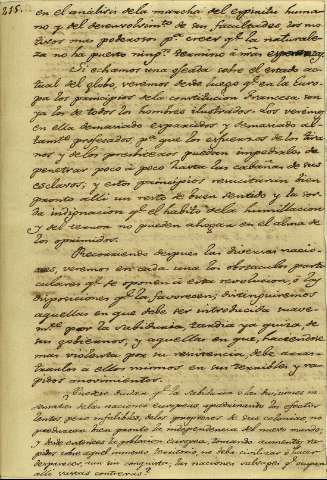 218.
en el análisis de la marcha del espíritu huma-
no y del desenvolvimto. de sus facultades, los mo-
tivos mas poderosos pa. creer qe. la naturale-
za no ha puesto ningn. termino á nras esperanzas.
Si echamos una ojeada sobre el estado ac-
tual del globo, veremos desde luego qe. en la Euro-
pa los principios de la constitucion francesa son
ya los de todos los hombres ilustrados. Los veremos
en ella demasiado esparcidos y demasiado al-
tamte. profesados pa. que los esfuerzos de los tira-
nos y de los presbiteros puedan impedirles de
penetrar poco á poco hasta las cabañas de sus
esclavos, y estos principios resucitarán bien
pronto alli un resto de buen sentido y la sor-
da indignacion qe. el habito de la humillacion
y del terror no pueden ahogar en el alma de
los oprimidos.
Recorriendo despues las diversas nacio-
nes, veremos en cada una los obstaculos parti-
culares qe. se oponen á esta revolucion, ó las
disposiciones qe. la favorecen; distinguiremos
aquellas en que debe ser introducida suave-
mte. por la sabiduria, tardia ya quiza, de
sus gobiernos, y aquellas en que, haciendose
mas violenta por su resistencia, debe arras-
trarlos á ellos mismos en sus terribles y ra-
pidos movimientos.
¿Puedese dudar qe. la sabiduria ó las divisiones in-
sensatas de las naciones europeas, apadrinando los efectos
lentos, pero infalibles, de los progresos de sus colonias, no
produzcan bien pronto la independencia del nuevo mundo,
y desde entonces la poblacion europea, tomando aumentos ra-
pidos sobre aquel inmenso territorio, no debe civilizar ó hacer
desaparecer, aun sin conquista, las naciones salvages qe. ocupan
alli vastas comarcas?